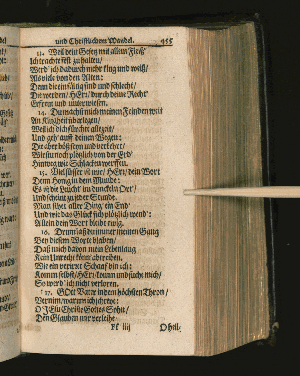 und Christlichen Wandel. 455
13. Weil dein Gesetz mit allem Fleiß
Ich trachte fest zu halten/
Werd ich dadurch mehr klug und weiß/
Als viele von den Alten:
Denn die einfältig sind und schlecht/
Die werden/ HErr/ durch deine Recht
Erfreut und unterwiesen.
14. Du machst mich meinen Feinden weit
An Klugheit
Weil ich dich fürchte allezeit/
Und geh' auff deinen Wegen:
Die aber böß
Wirfstu noch plötzlich von der Erd'
Hinweg wie Schlacken werffen.
15. Viel süsser ist mir/ HErr/ dein Wort
Denn Honig in dem Munde:
Es ist die Leucht' im dunckeln Ort/
Und scheint zu jeder Stunde.
Man sihet aller Ding' ein End'
Und wie das Glück sich plötzlich wend':
Allein dein Wort bleibt ewig.
16. Drum laß du immer meinen Gang
Bey diesem Worte bleiben/
Daß mich davon mein Lebenlang
Kan Unrecht könn' abtreiben.
Wie ein verirrt Schaaf bin ich:
Komm selbst/ HErr/ komm und suche mich/
So werd' ich nicht verloren.
17. GOtt Vater in dem höchsten Thron/
Vernim/ warum ich schreye:
O JEsu Christe Gottes Sohn/
Den Glauben mir verleihe
Ff iiij O heil.